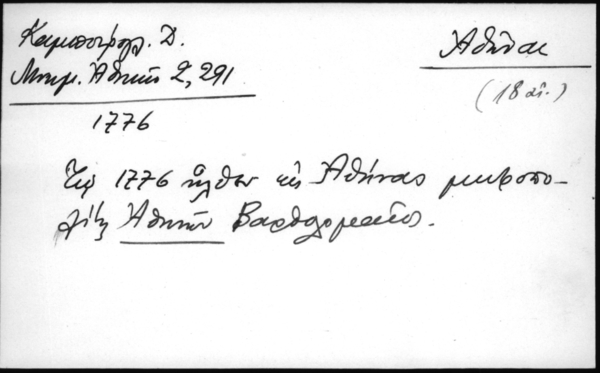 Καμπούρογλ. Δ.
Μνημ. Ἀθηνῶν 2, 291
Ἀθῆναι
(18 αἰ.)
1776
Τῷ 1776 ἦλθεν εἰς Ἀθήνας μητροπο-
λίτης Ἀθηνῶν Βαρθολομαῖος.